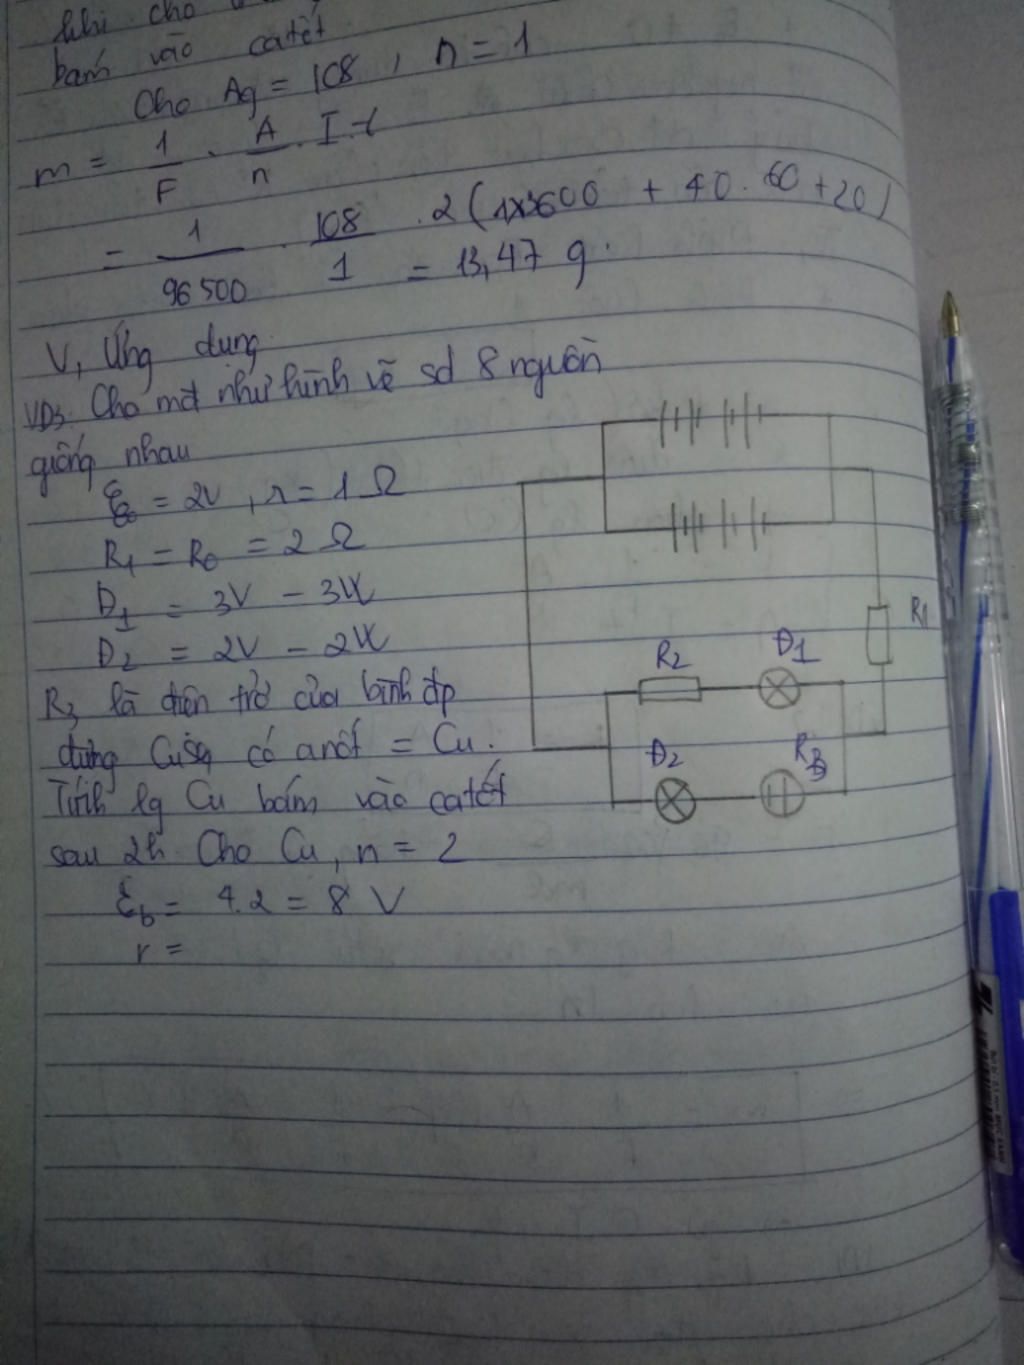 khi cho
bám vào catốt
Cho Ag = 108 , n = 1
m = 1/F . A/n . I.t
= 1/96500 . 108/1 . 2 (1x3600 + 40.60+20)
= 13,47 g.
V, Ứng dụng.
VD3. Cho mđ như hình vẽ sd 8 nguồn
giống nhau
ξ₀ = 2V , r = 1 Ω
R₁ = R₂ = 2 Ω
Đ₁ = 3V - 3W
Đ₂ = 2V - 2W
R₃ là điện trở của bình đp
đựng CuSO₄ có anốt = Cu.
Tính lg Cu bám vào catốt
sau 2h. Cho Cu, n = 2
ξb = 4.2 = 8 V
r =
R1
R2
Đ1
Đ2
R3